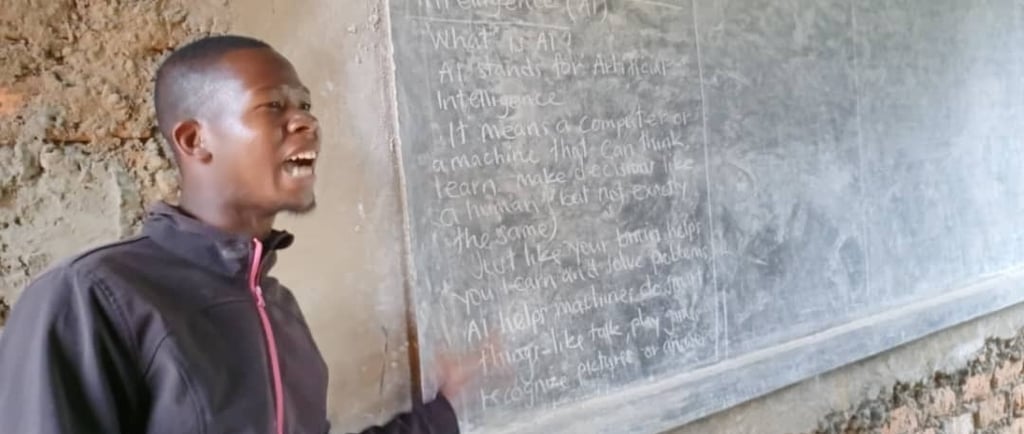 Intelligence (AI)
What is AI?
AI stands for Artificial
Intelligence
It means a computer or
a machine that can think,
learn, make decisions like
a human (but not exactly
the same)
Just like your brain helps
you learn and solve problems
AI helps machines do smart
things-like talk, play games
recognize pictures or music